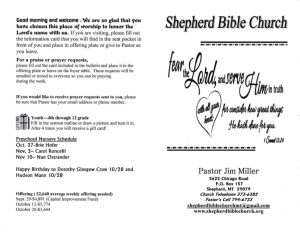 Good morning and welcome. We are so glad that you
have chosen this place of worship to honor the
Lord's name with us. If you are visiting, please fill out
the information card that you will find in the seat pocket in
front of you and place in offering plate or give to Pastor as
you leave.
For a praise or prayer requests,
please fill out the card included in the bulletin and place it in the
offering plate or leave on the foyer table. These requests will be
emailed or texted to everyone so you can be praying
during the week.
If you would like to receive prayer requests sent to you, please
be sure that Pastor has your email address or phone number.
Youth—4th through 12 grade
Fill in the sermon outline or draw a picture and turn it in.
After 4 times you will receive a gift card!
Preschool Nursery Schedule
Oct. 27-Brie Hofer
Nov. 3- Carol Roncelli
Nov 10- Nan Ostrander
Happy Birthday to Dorothy Glasgow Crow 10/28 and
Hudson Mans 10/28
Offering (\$2,640 average weekly offering needed)
Sept. 29-\$4,891 (Capital Improvement Fund)
October 13-\$5,774
October 20-\$3,644
Shepherd Bible Church
fear the Lord, and serve Him in truth
with all your heart:
for consider how great things
He hath done for you.
I Samuel 12:24
Pastor Jim Miller
5622 Chicago Road
P.O. Box 157
Shepherd, MT 59079
Church Telephone 373-6582
Pastor's Cell 794-6732
shepherdbiblechurch@gmail.com
www.shepherdbiblechurch.org